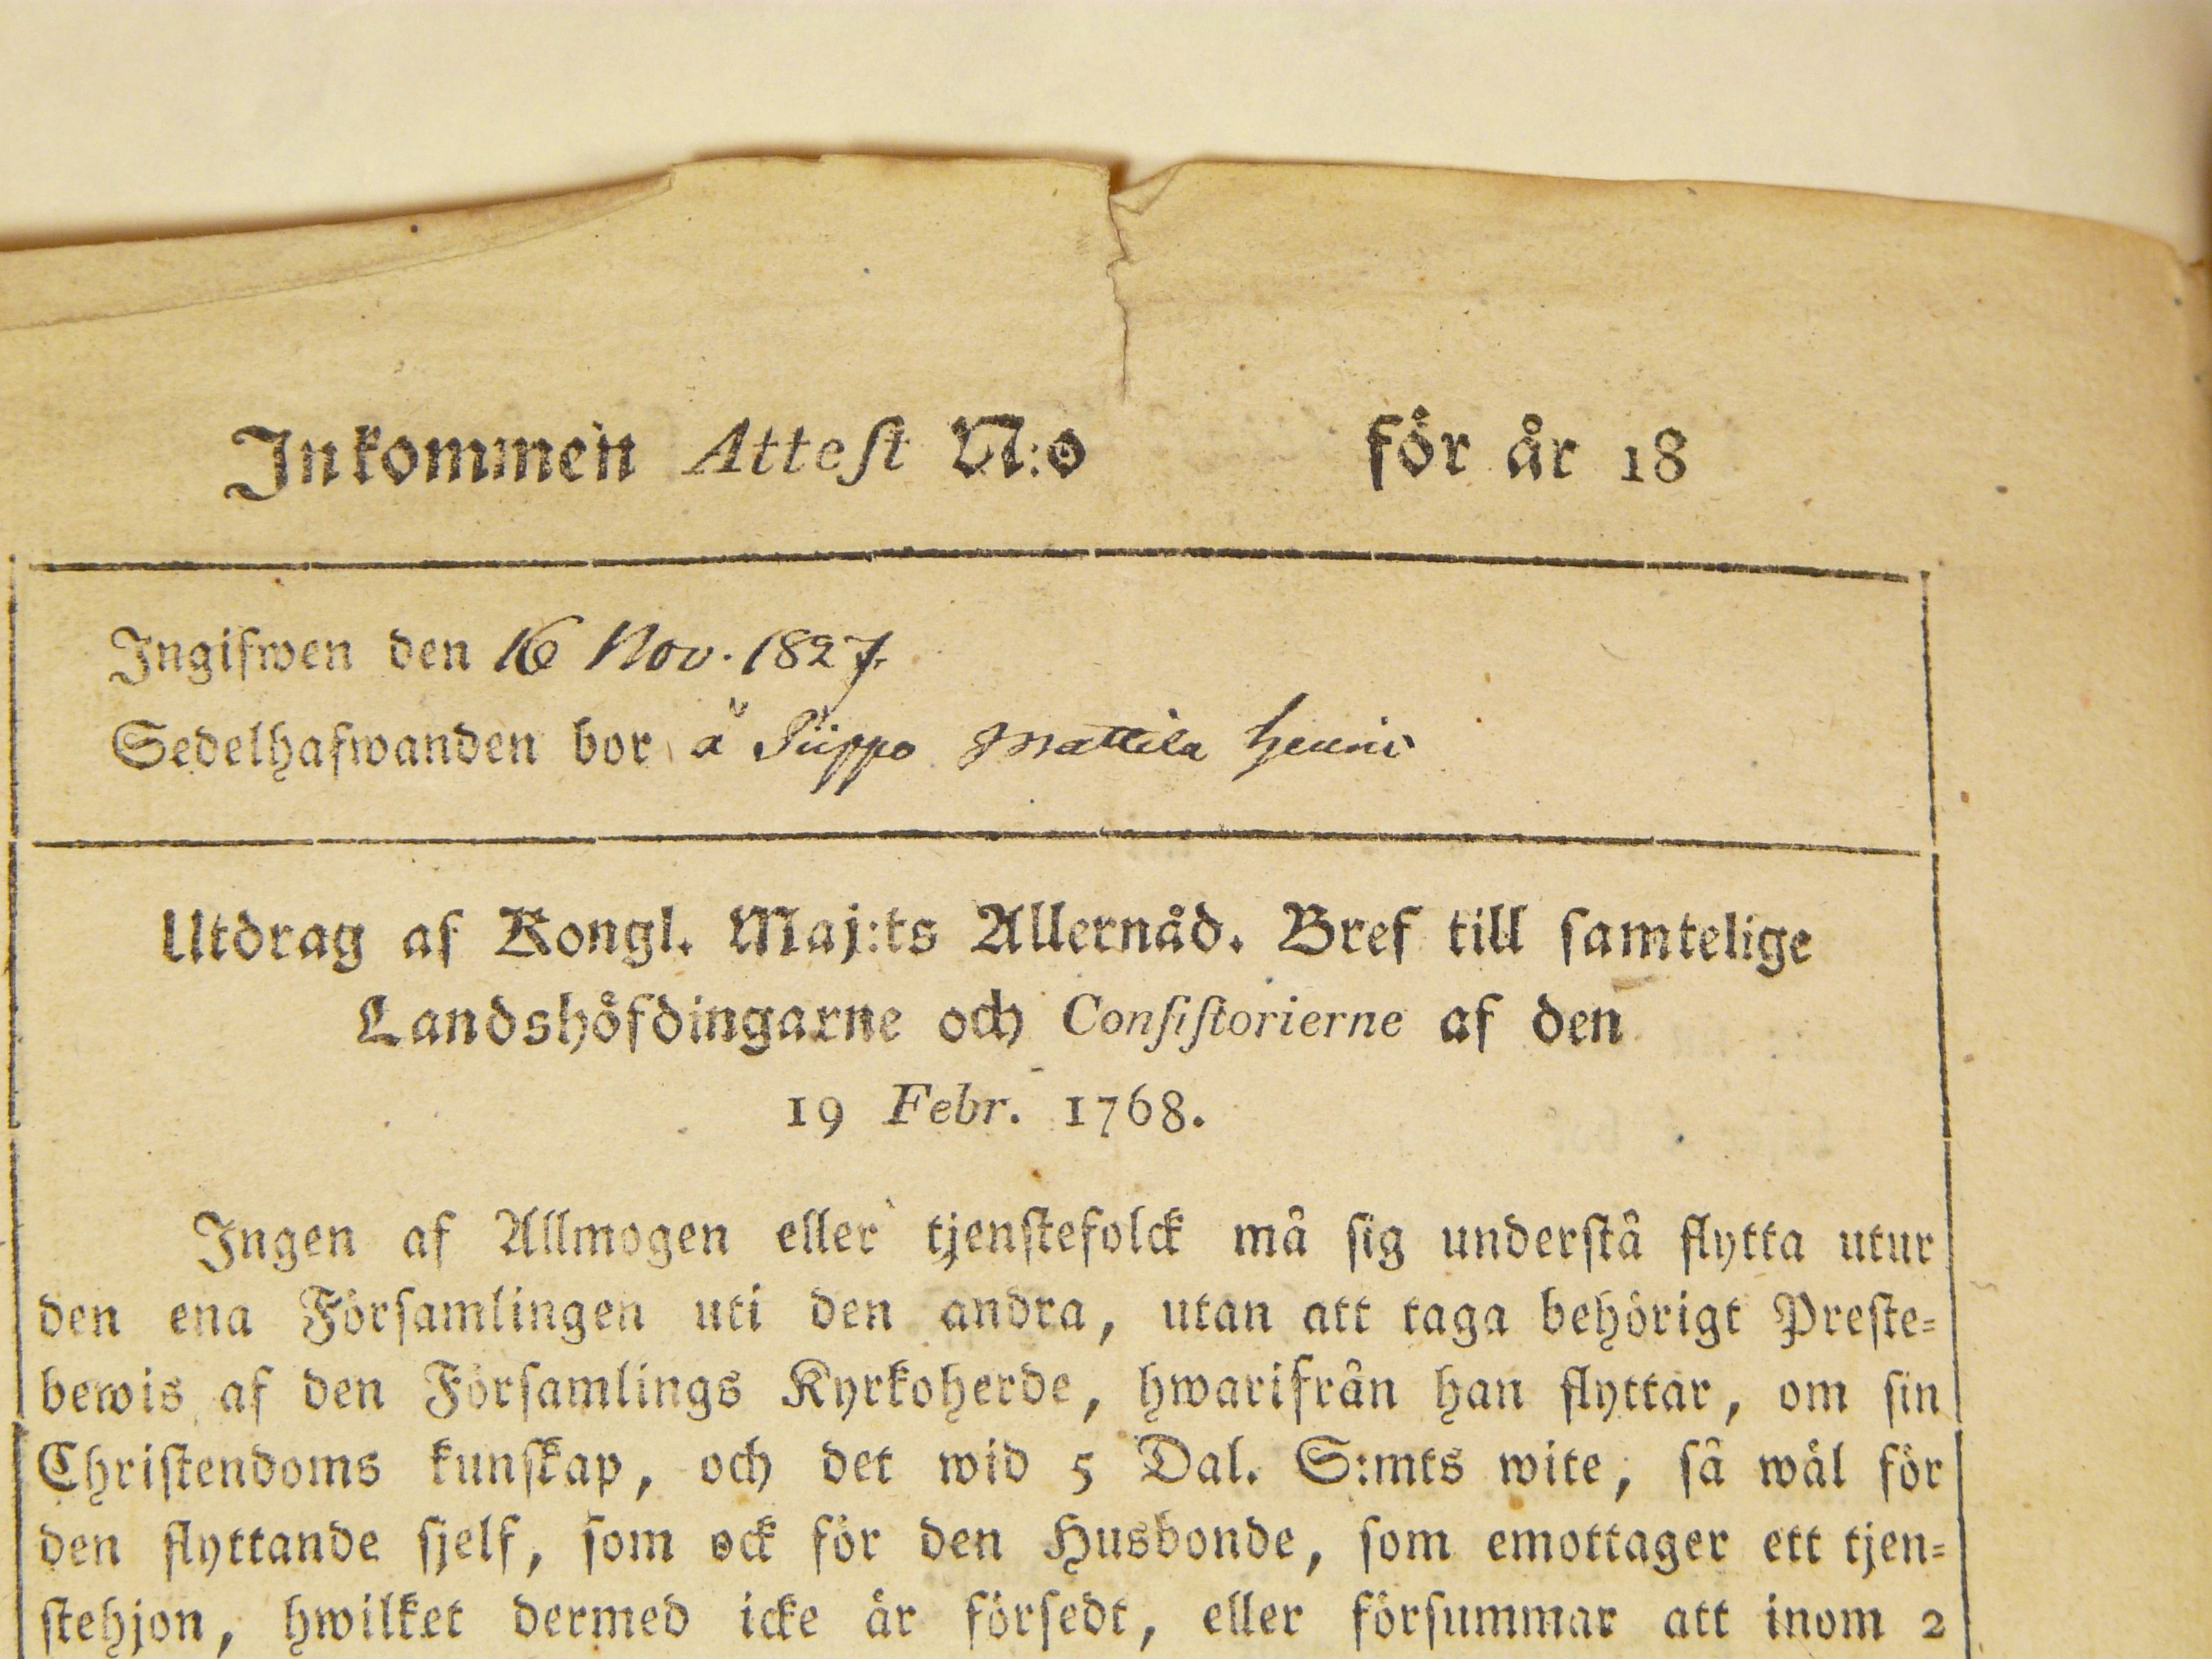 Inkommen Attest N:o för år 18
Ingifwen den 16 Nov. 1827.
Sedelhafwanden bor å Piippo Mattila
Utdrag af Kongl. Maj:ts Allernåd. Bref till samtelige
Landshöfdingarne och Consistorierne af den
19 Febr. 1768.
Ingen af Allmogen eller tjenstefolck må sig understå flytta utur
den ena Församlingen uti den andra, utan att taga behörigt Preste-
bewis af den Församlings Kyrkoherde, hwarifrån han flyttar, om sin
Christendoms kunskap, och det wid 5 Dal. S:mts wite, så wäl för
den flyttande sjelf, som ock för den Husbonde, som emottager ett tjen-
stehjon, hwilket dermed icke är försedt, eller försummar att inom 2